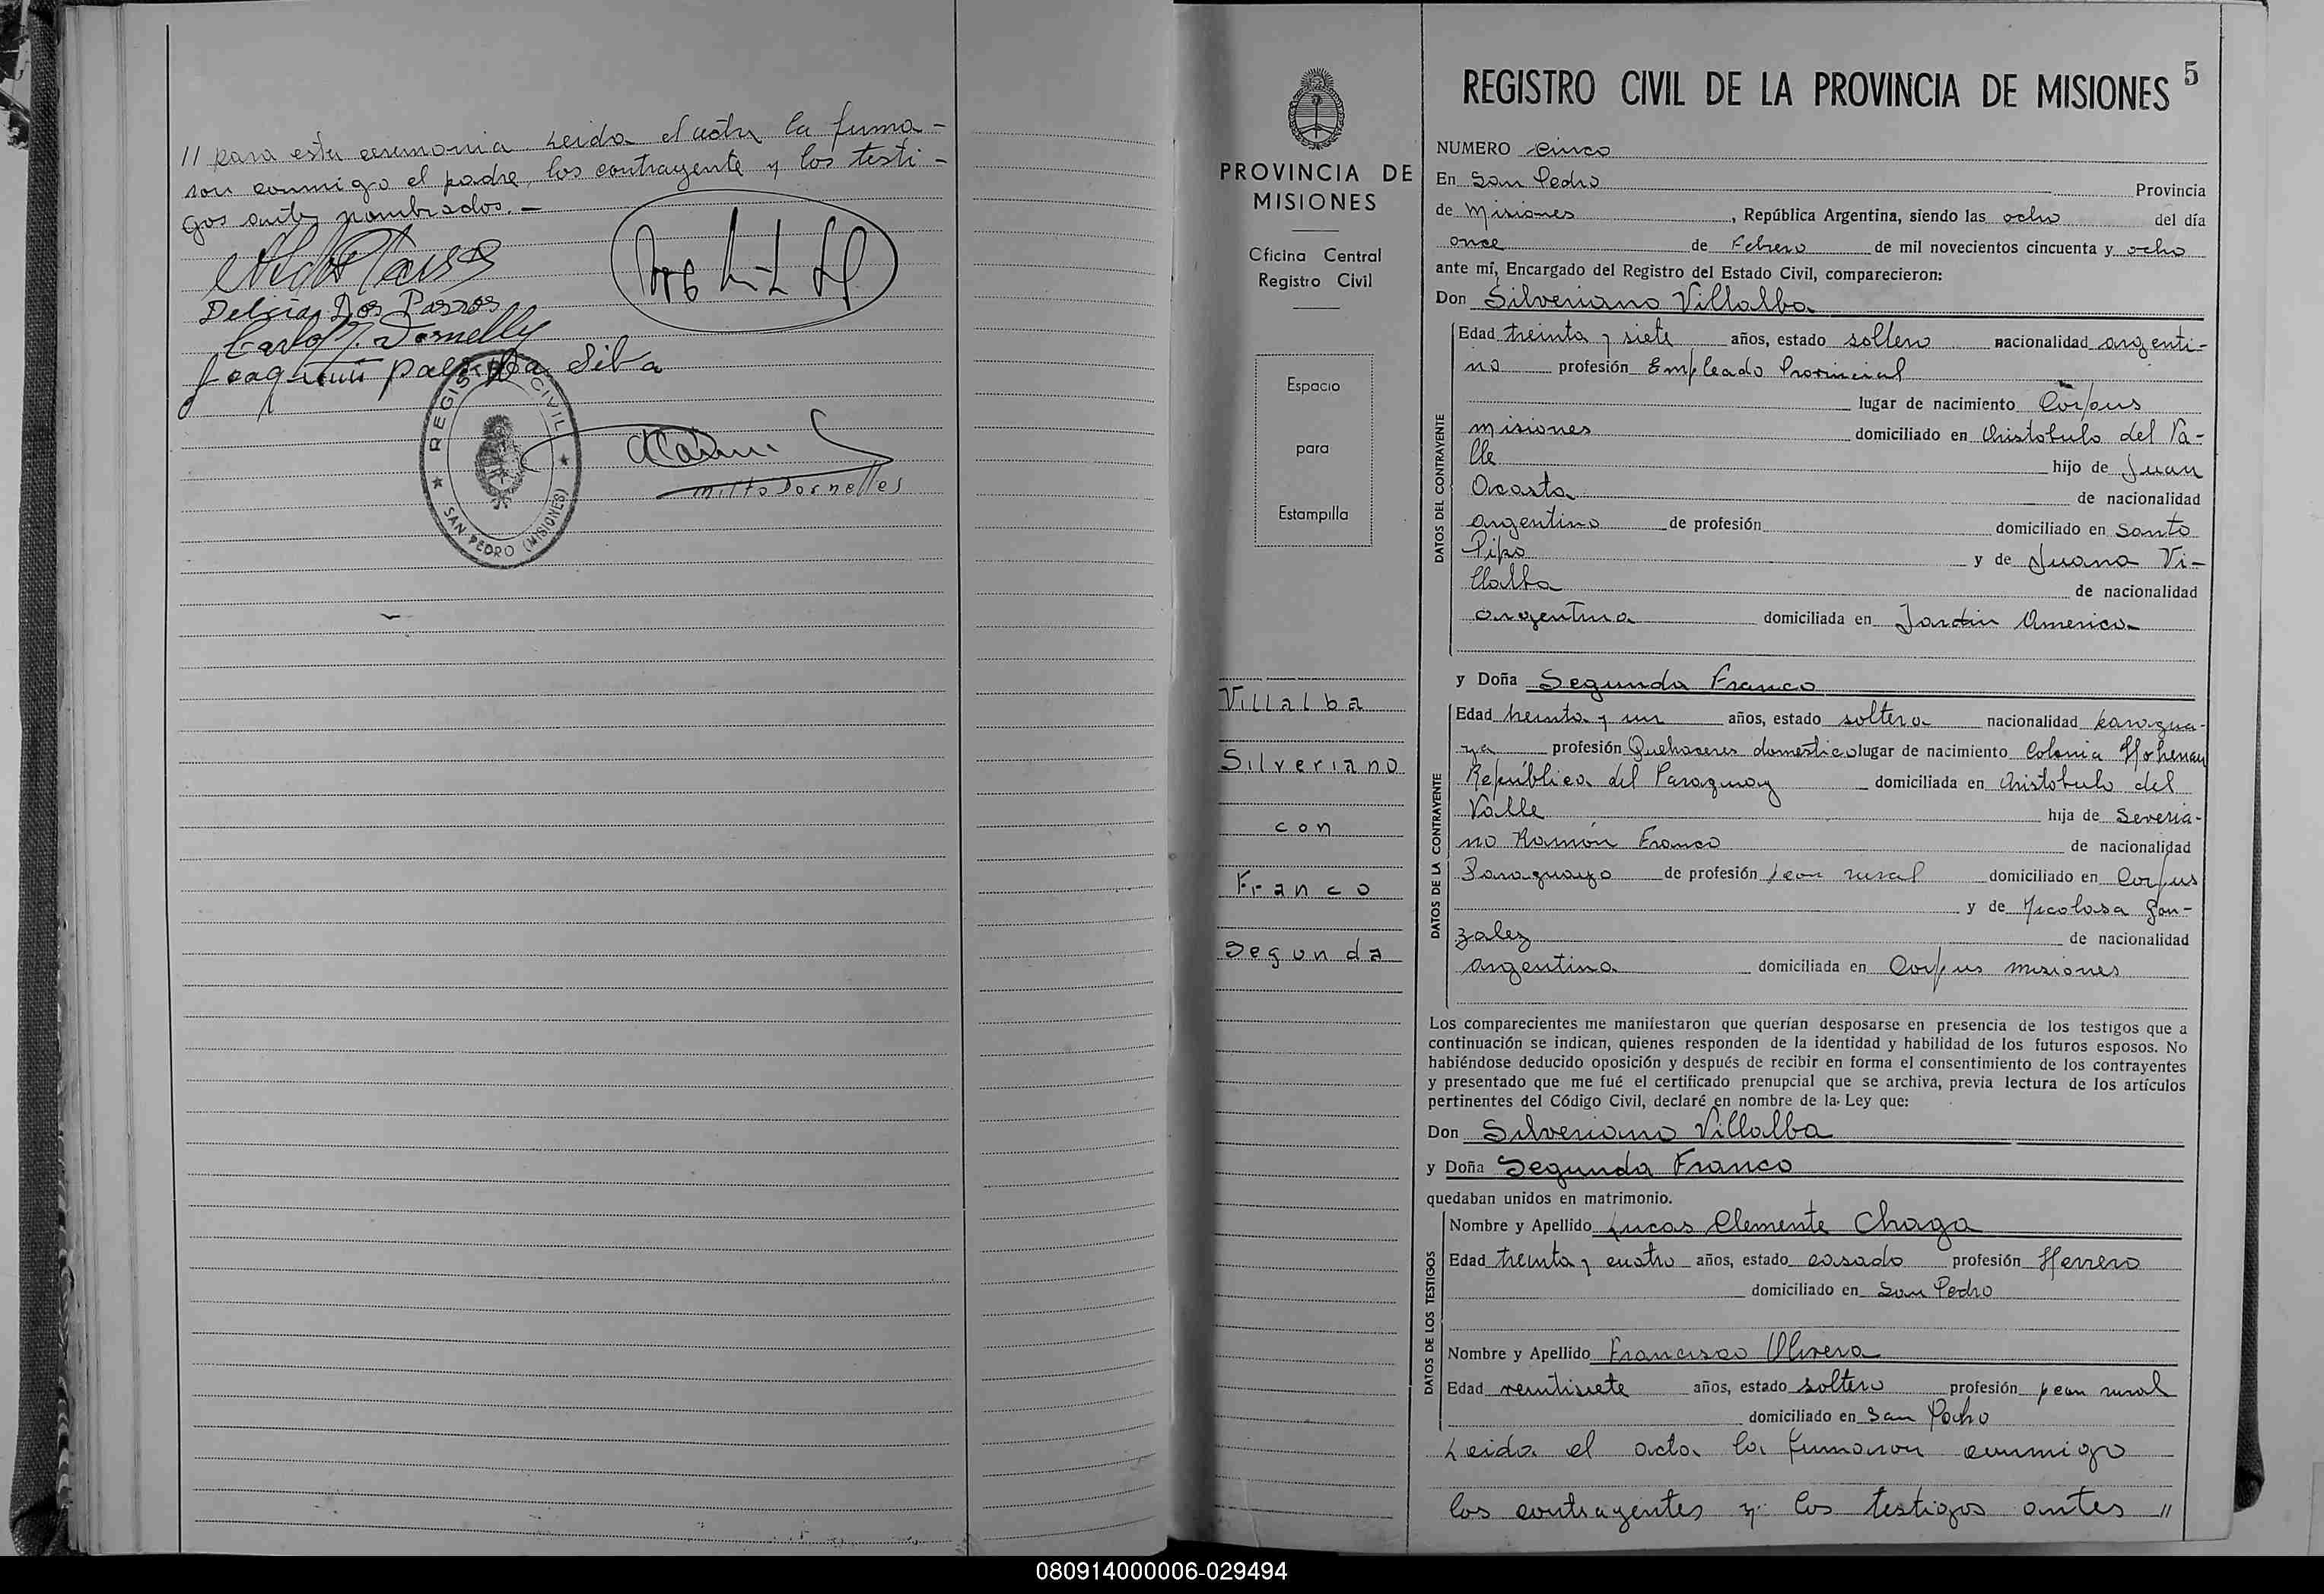 // para esta ceremonia. Leida el acta la firma-
ron conmigo el padre, los contrayente y los testi-
gos antes nombrados.-
Delicia Dos Passos
Joaquim da Silva
REGISTRO CIVIL
SAN PEDRO (MISIONES)
Milto Dornelles
PROVINCIA DE
MISIONES
Oficina Central
Registro Civil
Espacio
para
Estampilla
Villalba
Silveriano
con
Franco
Segunda
REGISTRO CIVIL DE LA PROVINCIA DE MISIONES 5
NUMERO cinco
En San Pedro Provincia
de Misiones, República Argentina, siendo las ocho del día
once de Febrero de mil novecientos cincuenta y ocho
ante mí, Encargado del Registro del Estado Civil, comparecieron:
Don Silveriano Villalba
DATOS DEL CONTRAYENTE
Edad treinta y siete años, estado soltero nacionalidad argenti-
no profesión Empleado Provincial
lugar de nacimiento Corpus
Misiones domiciliado en Aristobulo del Va-
lle hijo de Juan
Acosta de nacionalidad
argentino de profesión domiciliado en Santo
Pipo y de Juana Vi-
llalba de nacionalidad
argentina domiciliada en Jardin America
y Doña Segunda Franco
DATOS DE LA CONTRAYENTE
Edad treinta y un años, estado soltera nacionalidad paragua-
ya profesión Quehaceres domestico lugar de nacimiento Colonia Hohenau
República del Paraguay domiciliada en Aristobulo del
Valle hija de Severia-
no Ramón Franco de nacionalidad
Paraguayo de profesión peon rural domiciliado en Corpus
y de Nicolasa Gon-
zalez de nacionalidad
argentina domiciliada en Corpus Misiones
Los comparecientes me manifestaron que querían desposarse en presencia de los testigos que a
continuación se indican, quienes responden de la identidad y habilidad de los futuros esposos. No
habiéndose deducido oposición y después de recibir en forma el consentimiento de los contrayentes
y presentado que me fué el certificado prenupcial que se archiva, previa lectura de los artículos
pertinentes del Código Civil, declaré en nombre de la Ley que:
Don Silveriano Villalba
y Doña Segunda Franco
quedaban unidos en matrimonio.
DATOS DE LOS TESTIGOS
Nombre y Apellido Lucas Clemente Chaga
Edad treinta y cuatro años, estado casado profesión Herrero
domiciliado en San Pedro
Nombre y Apellido Francisco Olivera
Edad veintisiete años, estado soltero profesión peon rural
domiciliado en San Pedro
Leida el acta la firmaron conmigo
los contrayentes y los testigos antes //
080914000006-029494